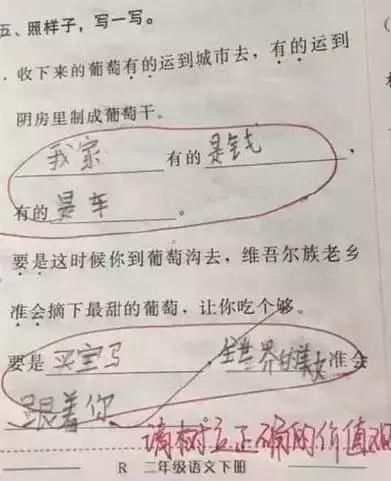 五、照样子,写一写。
.收下来的葡萄有的运到城市去,有的运到
阴房里制成葡萄干。
我家有的是钱,
有的是车。
要是这时候你到葡萄沟去,维吾尔族老乡
准会摘下最甜的葡萄,让你吃个够。
要是买宝马,全世界的美女准会
跟着你
请树立正确的价值观
R 二年级语文下册